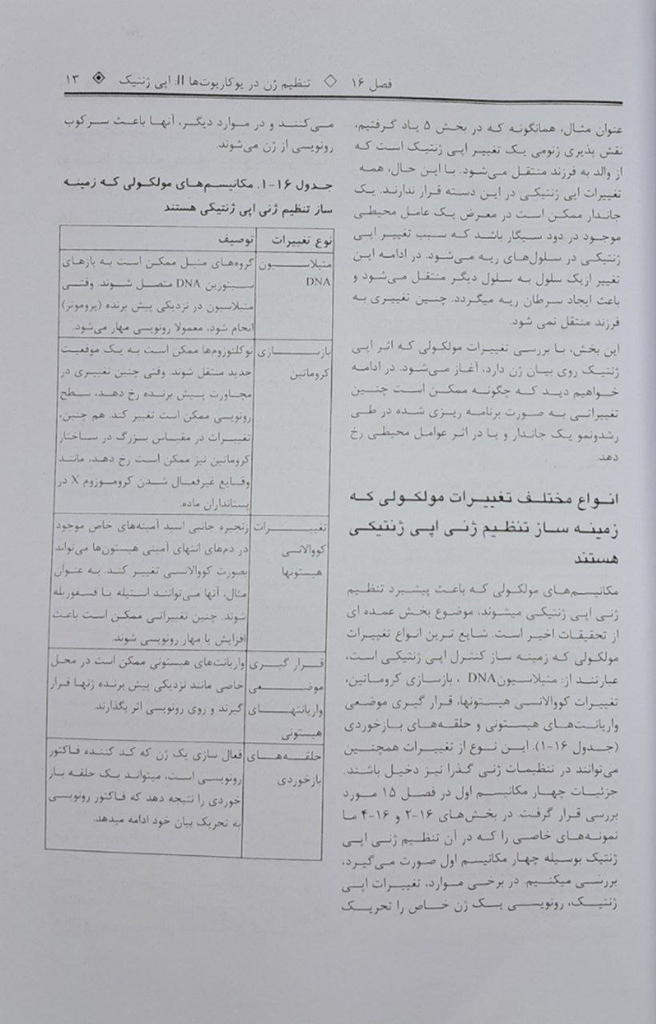 فصل ۱۶ ◇ تنظیم ژن در یوکاریوت‌ها II: اپی ژنتیک ◈ ۱۳
عنوان مثال، همانگونه که در بخش ۵ یاد گرفتیم،
نقش پذیری ژنومی یک تغییر اپی ژنتیک است که
از والد به فرزند منتقل می‌شود. با این حال، همه
تغییرات اپی ژنتیکی در این دسته قرار ندارند. یک
جاندار ممکن است در معرض یک عامل محیطی
موجود در دود سیگار باشد که سبب تغییر اپی
ژنتیکی در سلول‌های ریه می‌شود. در ادامه این
تغییر ازیک سلول به سلول دیگر منتقل می‌شود و
باعث ایجاد سرطان ریه میگردد. چنین تغییری به
فرزند منتقل نمی شود.
این بخش، با بررسی تغییرات مولکولی که اثر اپی
ژنتیک روی بیان ژن دارد، آغاز می‌شود. در ادامه
خواهیم دید که چگونه ممکن است چنین
تغییراتی به صورت برنامه ریزی شده در طی
رشدونمو یک جاندار و یا در اثر عوامل محیطی رخ
دهد.
انواع مختلف تغییرات مولکولی که
زمینه ساز تنظیم ژنی اپی ژنتیکی
هستند
مکانیسم‌های مولکولی که باعث پیشبرد تنظیم
ژنی اپی ژنتیکی میشوند، موضوع بخش عمده ای
از تحقیقات اخیر است. شایع ترین انواع تغییرات
مولکولی که زمینه ساز کنترل اپی ژنتیکی است،
عبارتند از: متیلاسیونDNA ، بازسازی کروماتین،
تغییرات کووالانسی هیستونها، قرار گیری موضعی
واریانت‌های هیستونی و حلقه‌های بازخوردی
(جدول ۱۶-۱). این نوع از تغییرات همچنین
می‌توانند در تنظیمات ژنی گذرا نیز دخیل باشند.
جزئیات چهار مکانیسم اول در فصل ۱۵ مورد
بررسی قرار گرفت. در بخش‌های ۱۶-۲ و ۱۶-۴ ما
نمونه‌های خاصی را که در آن تنظیم ژنی اپی
ژنتیک بوسیله چهار مکانیسم اول صورت می‌گیرد،
بررسی میکنیم. در برخی موارد، تغییرات اپی
ژنتیک، رونویسی یک ژن خاص را تحریک
می‌کنند و در موارد دیگر، آنها باعث سرکوب
رونویسی از ژن می‌شوند.
جدول ۱۶-۱. مکانیسم‌های مولکولی که زمینه
ساز تنظیم ژنی اپی ژنتیکی هستند
نوع تغییرات توصیف
متیلاسیون گروه‌های متیل ممکن است به بازهای
DNA سیتوزین DNA متصل شوند. وقتی
متیلاسیون در نزدیکی پیش برنده (پروموتر)
انجام شود، معمولا رونویسی مهار می‌شود.
بازسازی نوکلئوزوم‌ها ممکن است به یک موقعیت
کروماتین جدید منتقل شوند. وقتی چنین تغییری در
مجاورت پیش برنده رخ دهد، سطح
رونویسی ممکن است تغییر کند. هم چنین،
تغییرات در مقیاس بزرگ در ساختار
کروماتین نیز ممکن است رخ دهد، مانند
وقایع غیرفعال شدن کروموزوم X در
پستانداران ماده.
تغییرات زنجیره جانبی اسید آمینه‌های خاص موجود
کووالانسی در دم‌های انتهای آمینی هیستون‌ها می‌تواند
هیستونها بصورت کووالانسی تغییر کند. به عنوان
مثال، آنها می‌توانند استیله یا فسفوریله
شوند. چنین تغییراتی ممکن است باعث
افزایش یا مهار رونویسی شوند.
قرار گیری واریانت‌های هیستونی ممکن است در محل
موضعی خاصی مانند نزدیکی پیش برنده ژنها قرار
واریانتهای گیرند و روی رونویسی اثر بگذارند.
هیستونی
حلقه‌های فعال سازی یک ژن که کد کننده فاکتور
بازخوردی رونویسی است، میتواند یک حلقه باز
خوردی را نتیجه دهد که فاکتور رونویسی
به تحریک بیان خود ادامه میدهد.